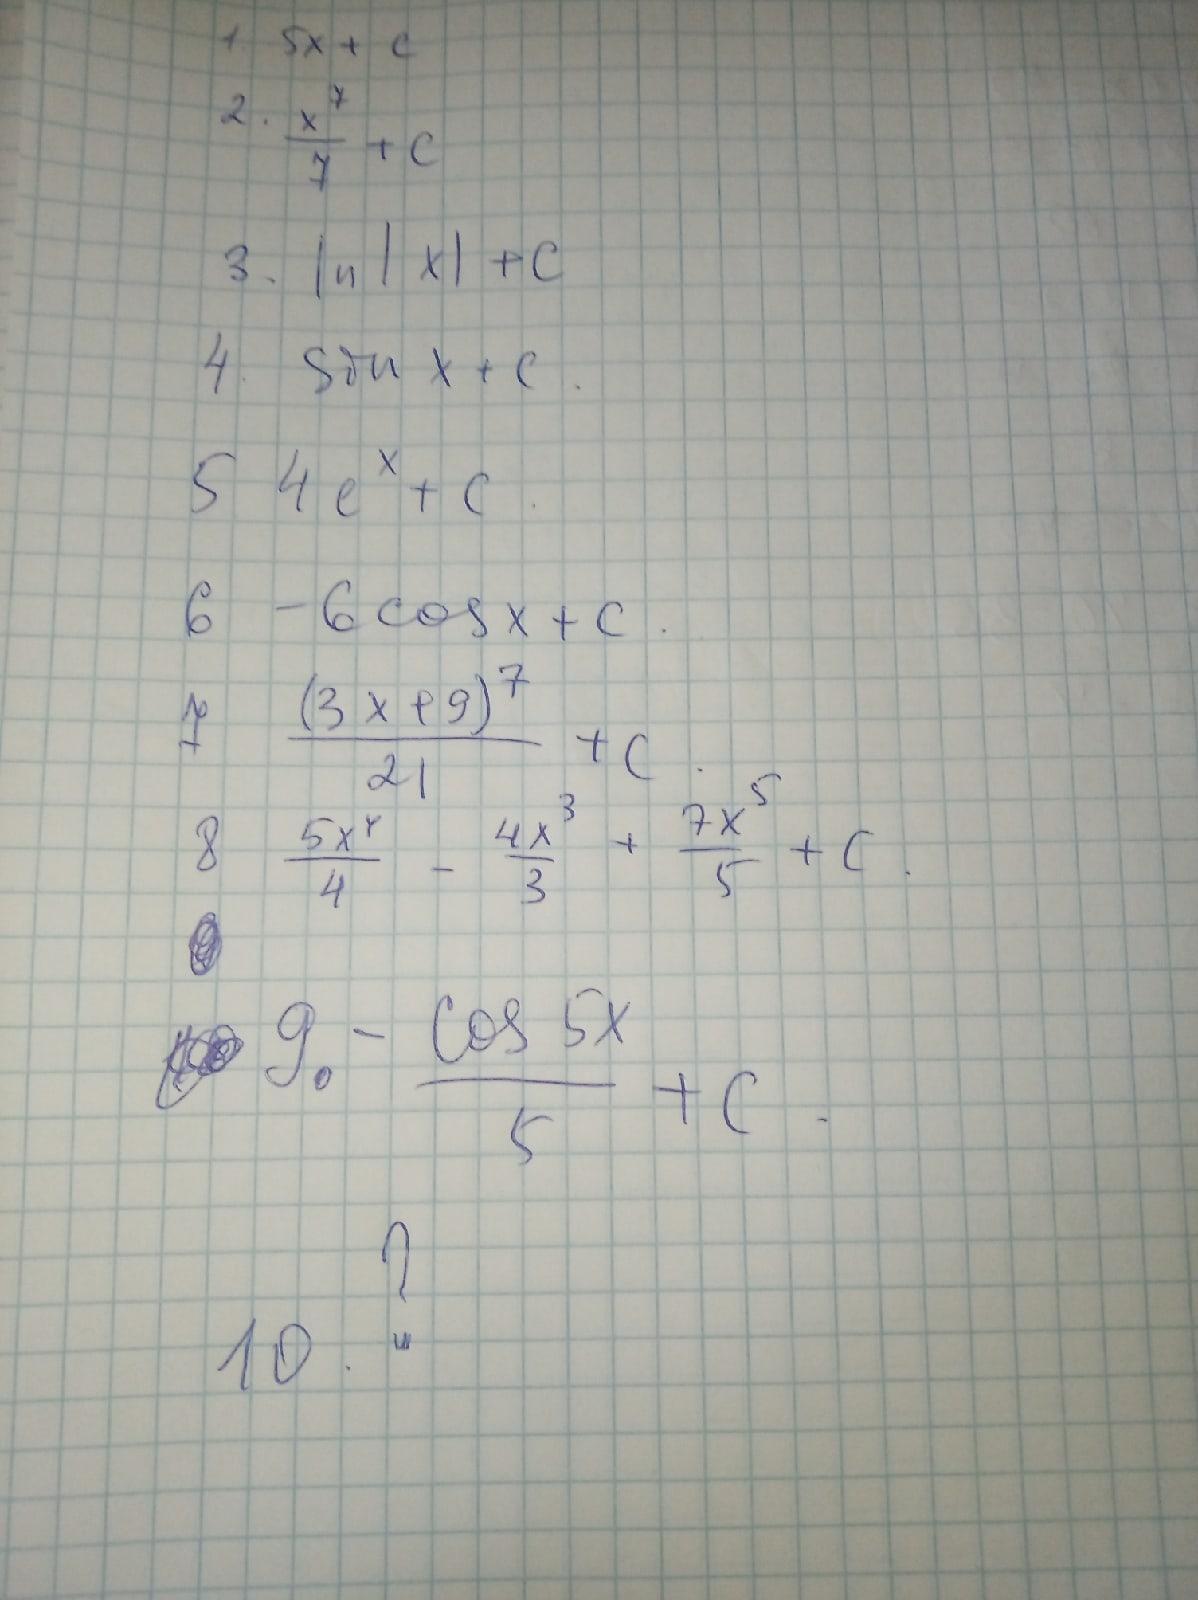 1. 5x + c
2. x^7/7 + C
3. ln|x| + C
4. sin x + c.
5 4e^x + C.
6 -6cosx + C.
7 (3x+9)^7/21 + C.
8 5x^4/4 - 4x^3/3 + 7x^5/5 + C.
9. - cos 5x/5 + C.
10. ?